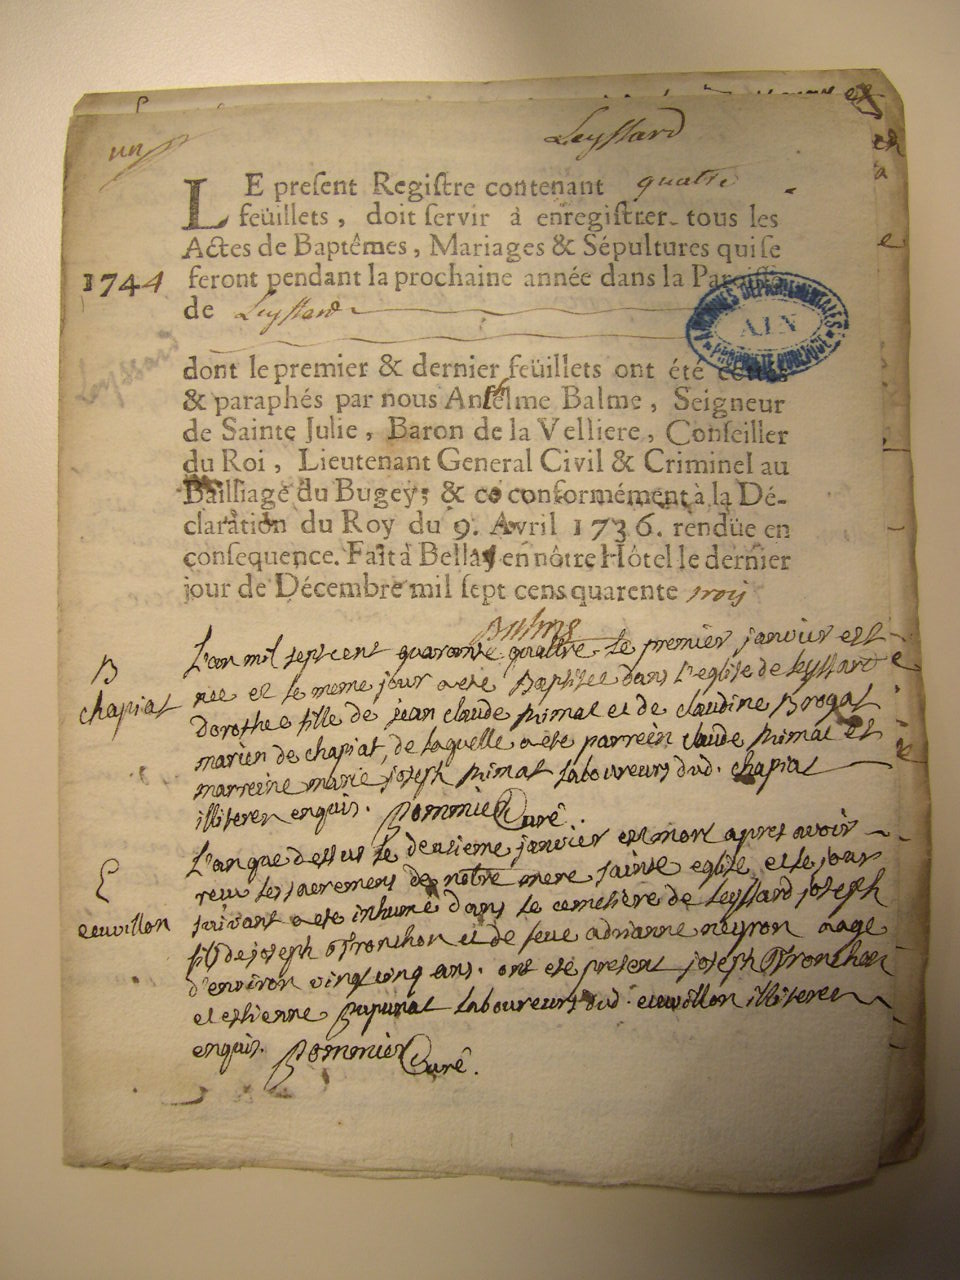 un
Leyssard
LE preſent Regiſtre contenant quatre
feüillets, doit ſervir à enregiſtrer tous les
Actes de Baptêmes, Mariages & Sépultures qui ſe
1744 feront pendant la prochaine année dans la Paroiſſe
de Leyssard
ARCHIVES DÉPARTEMENTALES
AIN
PROPRIÉTÉ PUBLIQUE
dont le premier & dernier feüillets ont été cottés
& paraphés par nous Anthelme Balme, Seigneur
de Sainte Julie, Baron de la Velliere, Conſeiller
du Roi, Lieutenant General Civil & Criminel au
Bailliage du Bugey; & ce conformément à la Dé-
claration du Roy du 9. Avril 1736. rendüe en
conſequence. Fait à Bellay en nôtre Hôtel le dernier
jour de Décembre mil ſept cens quarente trois
Balme
L'an mil sept cent quarante quattre le premier janvier est
B
chapiat
nee et le meme jour a eté Baptisee dans l'eglise de Leyssard
dorothee fille de jean claude primat et de claudine Brogat
mariez de chapiat, de laquelle a eté parrein claude primat et
marreine marie joseph primat laboureurs dud. chapiat
illiterez enquis. Pommier Curé.
L'an que dessus le deusieme janvier est mort apres avoir
E
receu les sacremens de notre mere sainte eglise et le jour
suivant a eté inhumé dans le cemetière de Leyssard joseph
fils de joseph Tronchon et de feue adrianne neyron aagé
d'environ vingt cinq ans. ont eté present joseph Tronchon
et estienne laboureurs dud. illiterez
enquis. Pommier Curé.